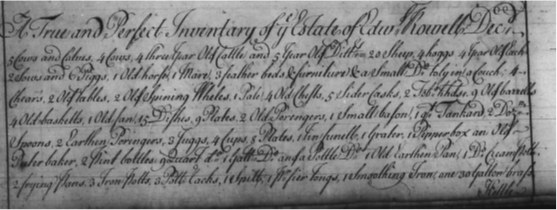 A True and Perfect Inventory of yͤ Estate of Edwᵈ Rowell Decᵈ
5 Cows and Calves, 4 Cows, 4 three Year Old Cattle and 5 Year Old Ditto 20 Sheep, 4 hoggs, 4 Year Old
2 Sows and Piggs, 1 Old horse, 1 Mare, 3 feather beds & furniture & a Small Dᵒ 4
Chears, 2 Old tables, 2 Old Spining Wheles, 1 Pale, 4 Old Chests, 5 Sider Casks, 2 9 Old barrells
4 Old baskells, 1 Old fan, 15 Dishes, 9 Plates, 2 Old Poringers, 1 Small bason, 1 Tankard, 2 Doz
Spoons, 2 Earthen Poringers, 3 Juggs, 4 Cups, 5 Plates, 1 tin funell, 1 Grater, 1 Pepper box an Old
baker, 2 Pint bottles, 9 Quart dᵒ 1 Gallⁿ Dᵒ and a Pottle Dᵒ 1 Old Earthen Pan, 1 Dᵒ Cream Pott
2 frying Pans, 3 Iron Potts, 3 Pott racks, 1 Spitt, 1 longs, 1 Smoothing Iron, one 30 Gallon brass
Kittle